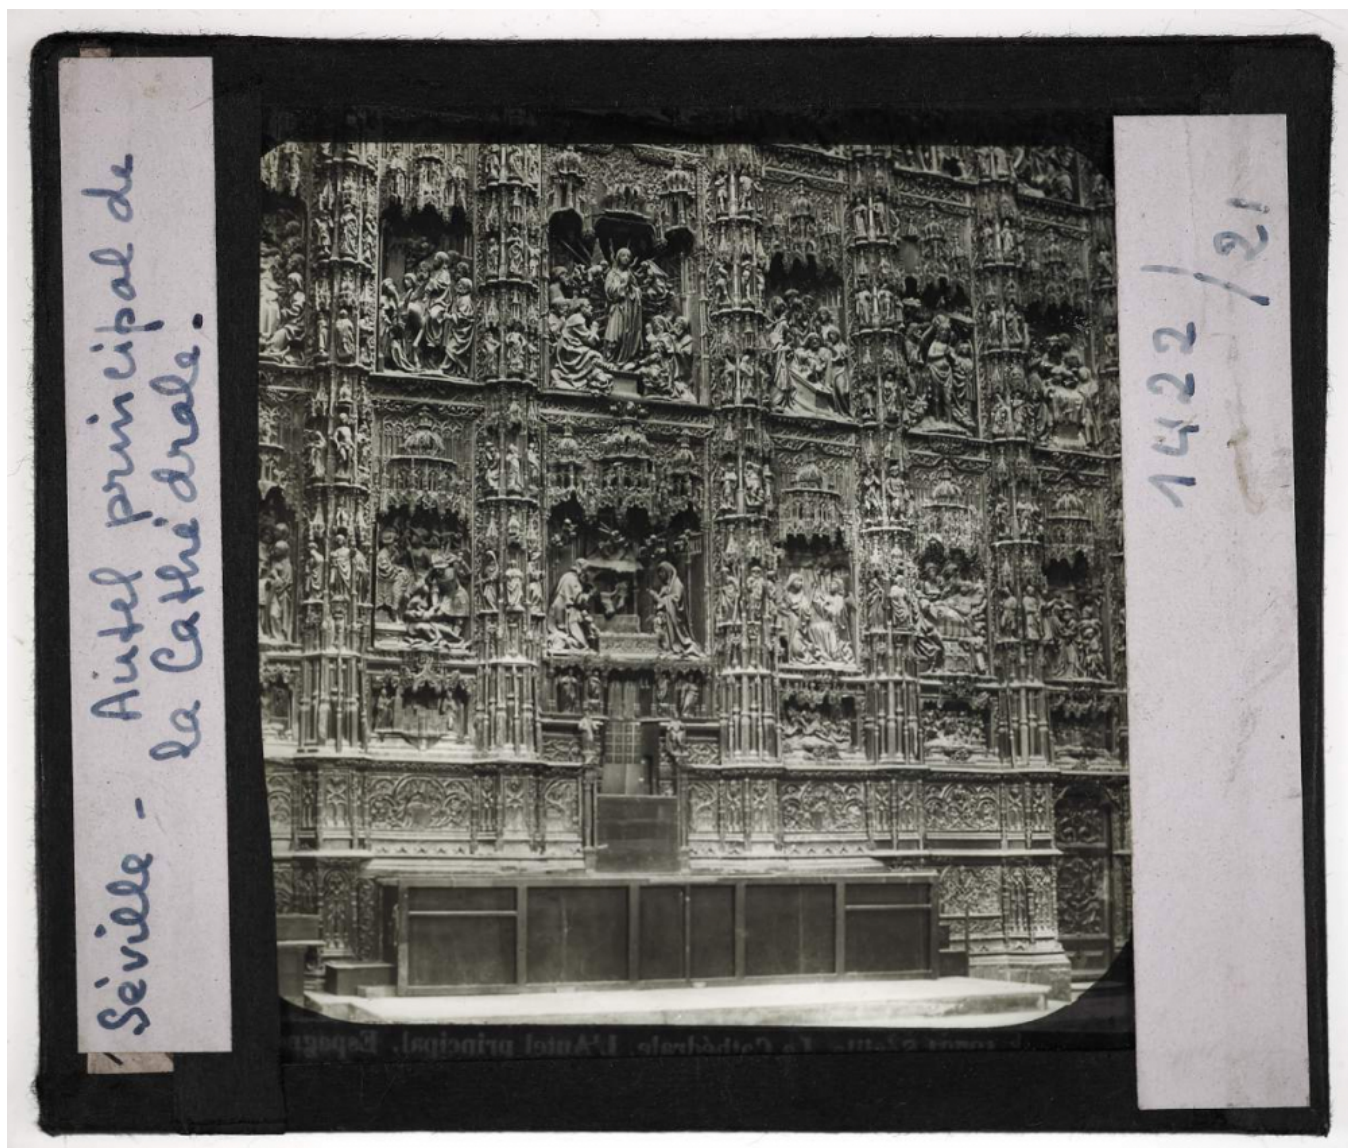 Séville - Autel principal de
la Cathédrale.
1422
/21
Séville. La Cathédrale. L'Autel principal. Espagne